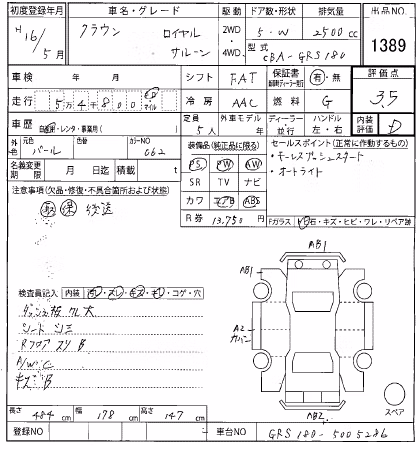 初度登録年月 車名・グレード 駆動 ドア数・形状 排気量 出品NO
H16/5月 クラウン ロイヤルサルーン 2WD 4WD 5・W 2500cc 1389
型式 CBA-GRS180
車検 年 月 シフト FAT 保証書 有・無 評価点 3.5
走行 5万4千800 km マイル 冷房 AAC 燃料 G
車歴 自家用・レンタ・事業用( ) 定員 5人 外車モデル 年 ディーラー 並行 ハンドル 左・右 内装評価 D
外色 元色 パール カラーNO 062 装備品(純正品に限る) セールスポイント(正常に作動するもの)
PS PW AW ・キーレスプッシュスタート
名義変更期限 月 日迄 積載量 t SR TV ナビ ・オートライト
注意事項(欠品・修復・不具合箇所および状態) カワ エアB ABS
取 保 後送 R券 13,750円 Fガラス 石・キズ・ヒビ・ワレ・リペア跡
AB1
AB1
検査員記入 内装 汚レ・スレ・キズ・モレ・コゲ・穴
ダッシュ板ワレ大 A2
シートシミ カバン
RフロアスリB
A/W C
キズB スペア
長さ 484cm 幅 178cm 高さ 147cm AB2
登録NO 車台NO GRS180-5005286